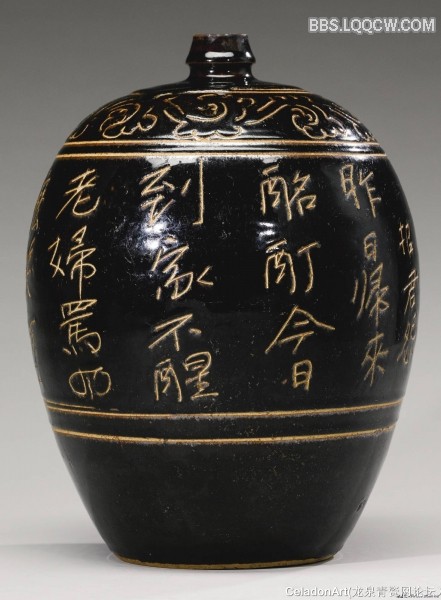 BBS.LQQCW.COM
君
昨日歸來
酩酊今日
到家不醒
老婦罵
CeladonArt(龙泉青瓷网论坛